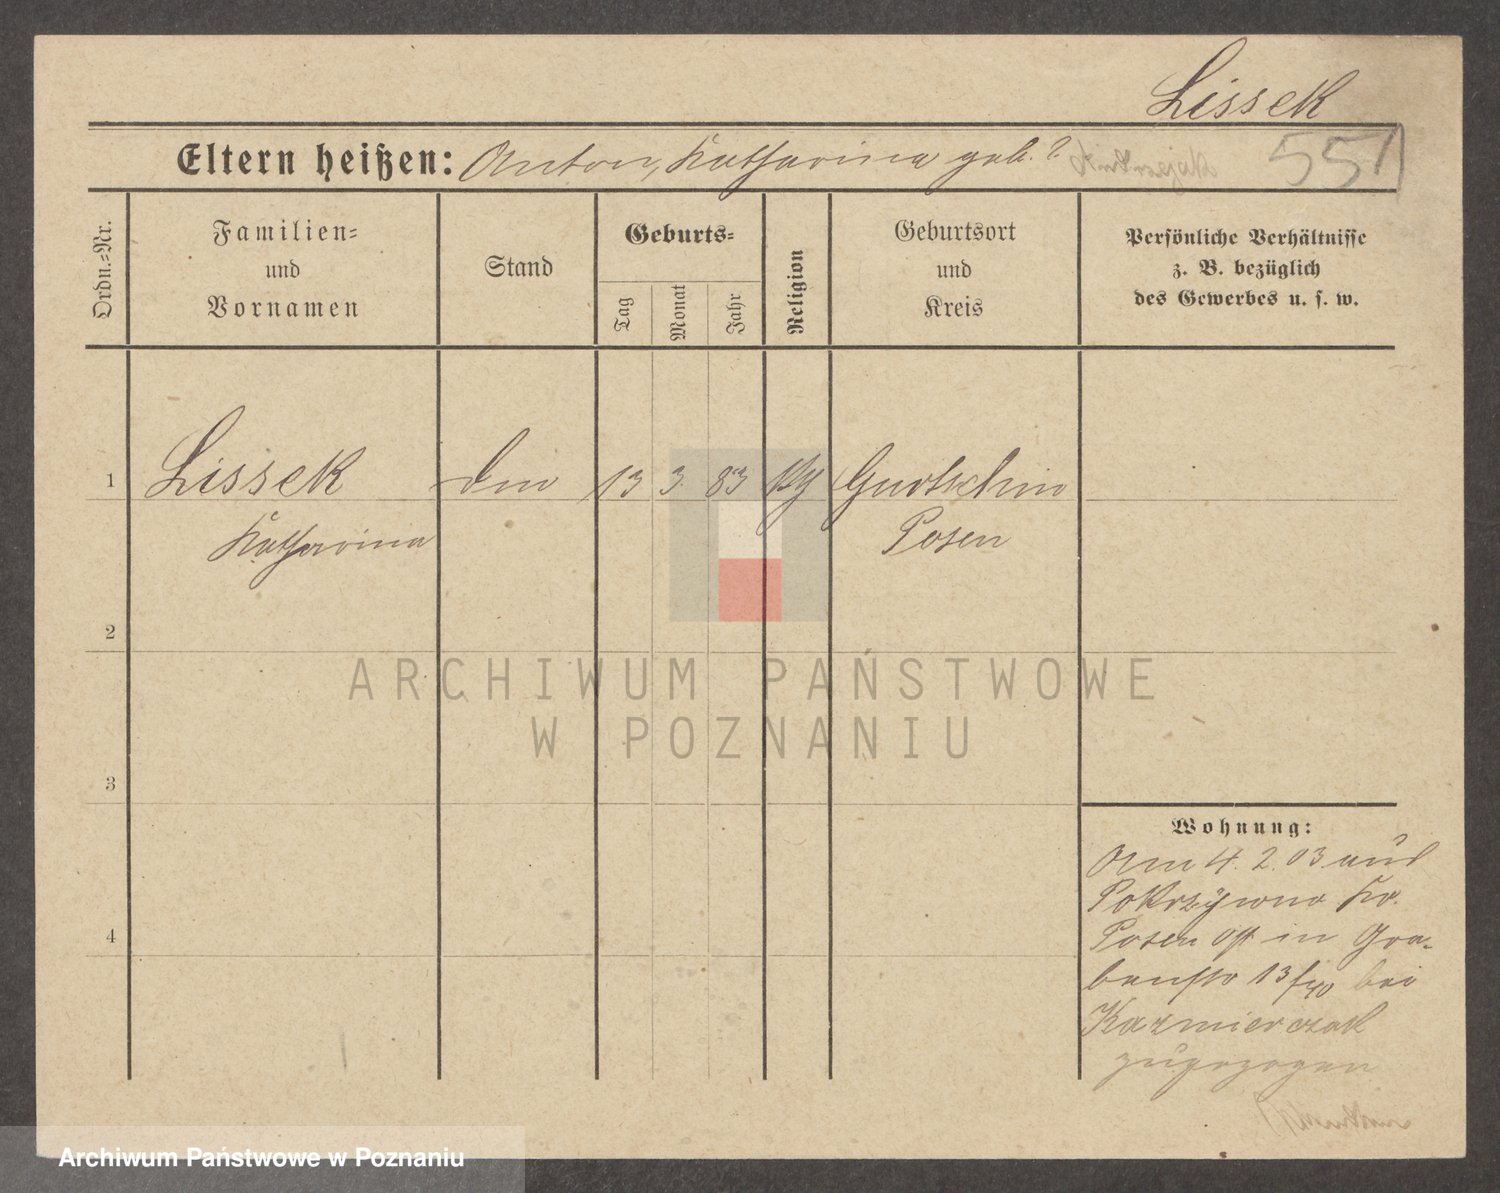 Lissek
Eltern heißen: Anton, Katharina geb. ?
551
Ordn.-Nr.
Familien-
und
Vornamen
Stand
Geburts-
Tag
Monat
Jahr
Religion
Geburtsort
und
Kreis
Persönliche Verhältnisse
z. B. bezüglich
des Gewerbes u. s. w.
1 Lissek 13 3. 83 Gurtschin
Katharina Posen
2
3
4
ARCHIWUM PAŃSTWOWE
W POZNANIU
Wohnung:
Am 4. 2. 03 aus
Pokrzywno Kr.
Posen Ost in Gra-
benstr 13 bei
Kazmierczak
zugezogen
Archiwum Państwowe w Poznaniu